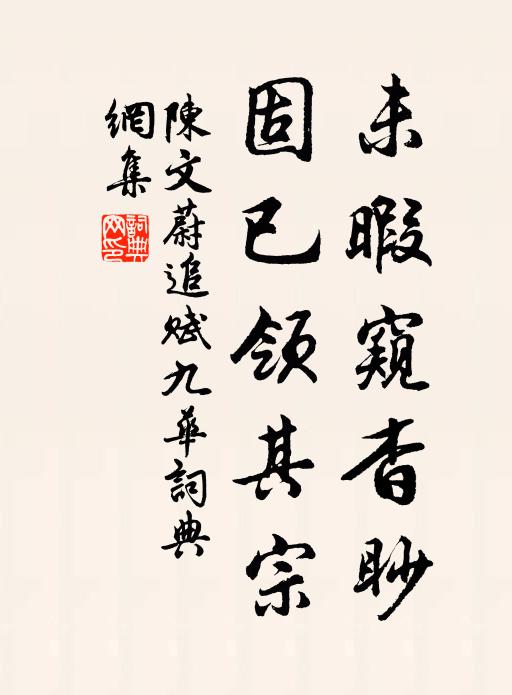 未暇窺杳眇
固已領其宗
陳文蔚追賦九華詞典
網集
詞典網印